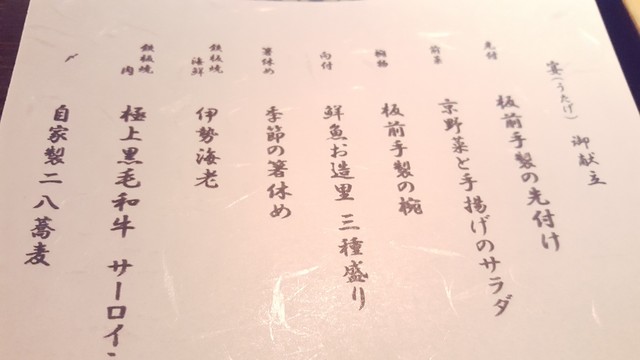 宴(うたげ) 御献立
先付
板前手製の先付け
前菜
京野菜と手揚げのサラダ
椀物
板前手製の椀
向付
鮮魚お造里 三種盛り
箸休め
季節の箸休め
鉄板焼
海鮮
伊勢海老
鉄板焼
肉
極上黒毛和牛 サーロイン
〆
自家製二八蕎麦